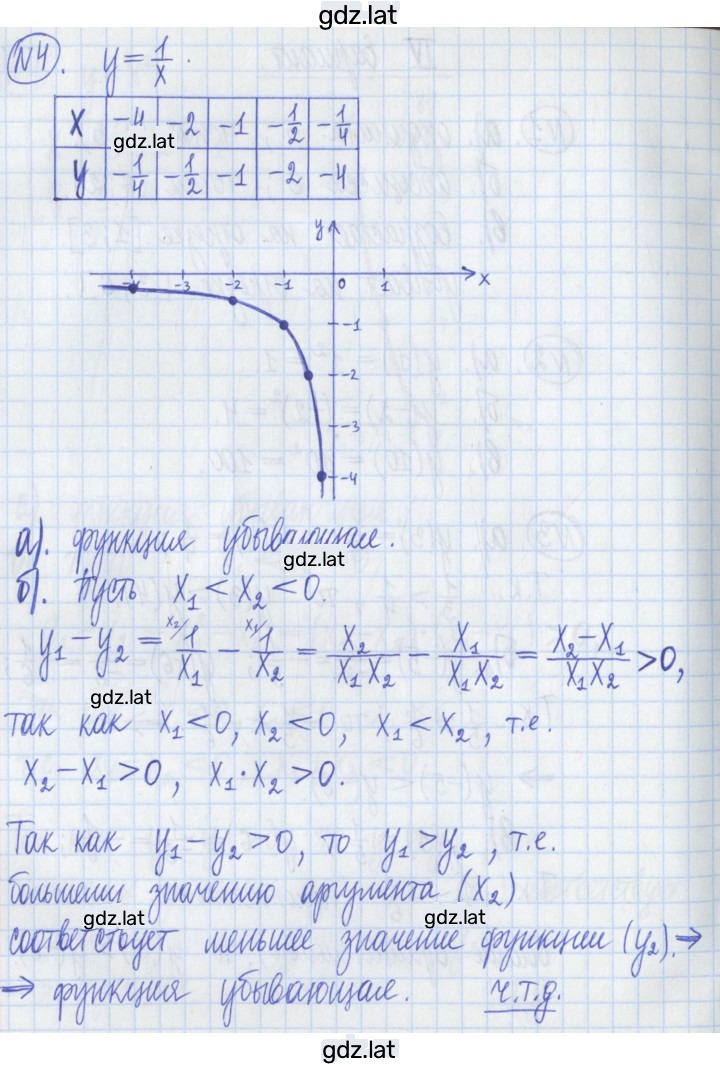 gdz.lat
№4. y = 1/x.
x -4 -2 -1 -1/2 -1/4
gdz.lat
y -1/4 -1/2 -1 -2 -4
y
-4 -3 -2 -1 0 1 x
-1
-2
-3
-4
а). функция убывающая.
gdz.lat
б). Пусть x₁ < x₂ < 0.
y₁ - y₂ = ˣ²⁄1/x₁ - ˣ¹⁄1/x₂ = x₂/x₁x₂ - x₁/x₁x₂ = x₂-x₁/x₁x₂ > 0,
gdz.lat
так как x₁<0, x₂<0, x₁<x₂, т.е.
x₂-x₁>0, x₁·x₂>0.
Так как y₁-y₂>0, то y₁>y₂, т.е.
большему значению аргумента (x₂)
gdz.lat gdz.lat
соответствует меньшее значение функции (y₂). ⇒
⇒ функция убывающая. ч.т.д.
gdz.lat